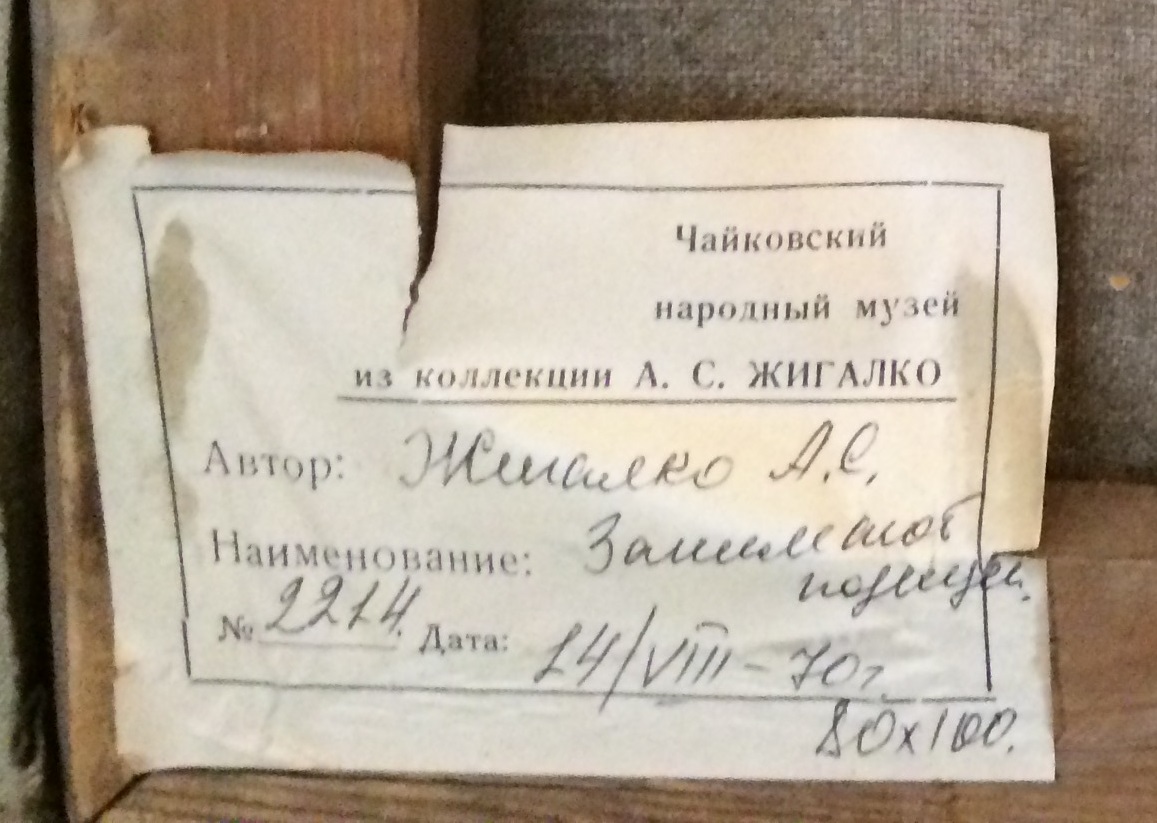 Чайковский
народный музей
из коллекции А. С. ЖИГАЛКО
Автор: Жигалко А.С.
Наименование: Занимают
позиции.
№ 2214. Дата: 14/VIII-70г.
80х100.